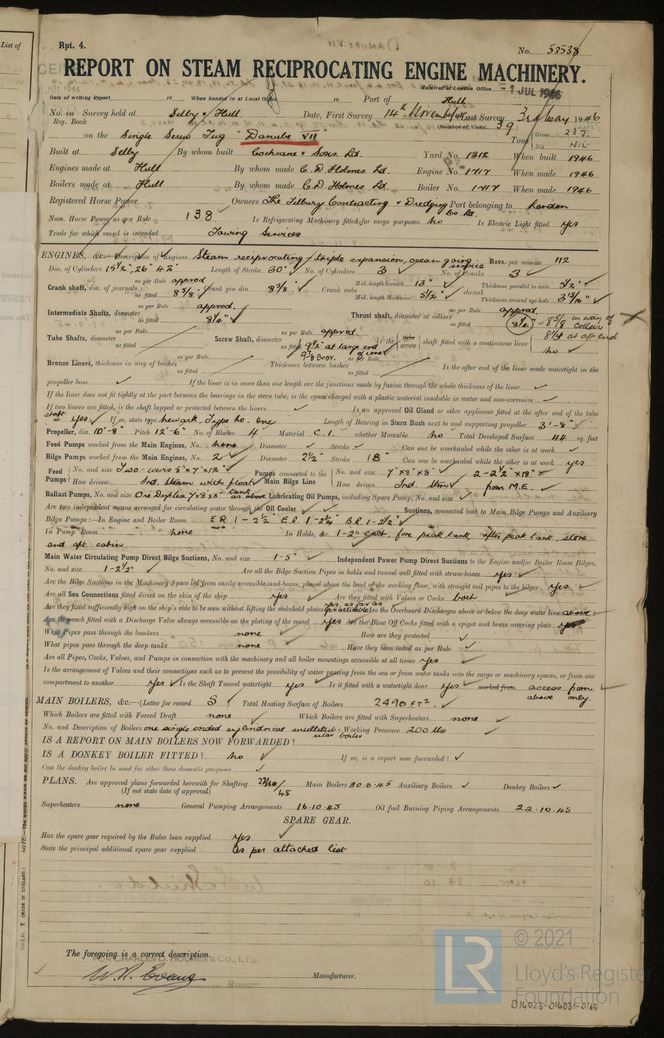 List of
Rpt. 4.
No. 53538
REPORT ON STEAM RECIPROCATING ENGINE MACHINERY.
Received at London Office -1 JUL 1946
Date of writing Report 19 When handed in at Local Office 19 Port of Hull
No. in Survey held at Selby & Hull Date, First Survey 14th November Last Survey 3rd May 1946
Reg. Book (Number of Visits 39)
on the Single Screw Tug "Danube VII" Tons Gross 237 Net Nil
Built at Selby By whom built Cochrane & Sons Ld. Yard No. 1312 When built 1946
Engines made at Hull By whom made C.D. Holmes Ld. Engine No. 1717 When made 1946
Boilers made at Hull By whom made C.D. Holmes Ld. Boiler No. 1717 When made 1946
Registered Horse Power Owners The Tilbury Contracting & Dredging Co. Ld. Port belonging to London
Nom. Horse Power as per Rule 138 Is Refrigerating Machinery fitted for cargo purposes no Is Electric Light fitted yes
Trade for which vessel is intended Towing Services
ENGINES, &c.—Description of Engines Steam reciprocating triple expansion, ocean going service Revs. per minute 112
Dia. of Cylinders 15½" 26" 42" Length of Stroke 30" No. of Cylinders 3 No. of Cranks 3
Crank shaft, dia. of journals as per Rule approd as fitted 8⅝" Crank pin dia. 8⅝" Crank webs Mid. length breadth 13" Mid. length thickness 5½" shrunk Thickness parallel to axis 5½" Thickness around eye-hole
Intermediate Shafts, diameter as per Rule approd. as fitted 8¼" Thrust shaft, diameter at collars as per Rule approd as fitted 8⅝ in way of collars 8¼ at aft end
Tube Shafts, diameter as per Rule as fitted Screw Shaft, diameter as per Rule approd. as fitted 9½" at large end of cone Is the screw shaft fitted with a continuous liner no
Bronze Liners, thickness in way of bushes as per Rule as fitted Thickness between bushes as per Rule as fitted Is the after end of the liner made watertight in the
propeller boss If the liner is in more than one length are the junctions made by fusion through the whole thickness of the liner
If the liner does not fit tightly at the part between the bearings in the stern tube, is the space charged with a plastic material insoluble in water and non-corrosive
If two liners are fitted, is the shaft lapped or protected between the liners Is an approved Oil Gland or other appliance fitted at the after end of the tube
shaft yes If so, state type Newark Type No. one Length of Bearing in Stern Bush next to and supporting propeller 3'-8"
Propeller, dia. 10'-8" Pitch 12'-6" No. of Blades 4 Material C.I. whether Moveable no Total Developed Surface 44 sq. feet
Feed Pumps worked from the Main Engines, No. none Diameter Stroke Can one be overhauled while the other is at work
Bilge Pumps worked from the Main Engines, No. 2 Diameter 2½" Stroke 18" Can one be overhauled while the other is at work yes
Feed Pumps No. and size Two-weirs 5"x7"x12" How driven Ind. Steam with float tank Pumps connected to the Main Bilge Line No. and size 7"x8"x8" 2-2½"x18" How driven Ind. Stm from M.E.
Ballast Pumps, No. and size One Duplex 7x8x8 as above Lubricating Oil Pumps, including Spare Pump, No. and size
Are two independent means arranged for circulating water through the Oil Cooler Suctions, connected both to Main Bilge Pumps and Auxiliary
Bilge Pumps:—In Engine and Boiler Room E.R. 1-2½ E.R. 1-2¼ B.R. 1-2½"
In Pump Room none In Holds, &c. 1-2" each fore peak tank after peak tank, store
and aft cabin
Main Water Circulating Pump Direct Bilge Suctions, No. and size 1-5" Independent Power Pump Direct Suctions to the Engine and/or Boiler Room Bilges,
No. and size 1-2½" Are all the Bilge Suction Pipes in holds and tunnel well fitted with strum-boxes yes
Are the Bilge Suctions in the Machinery Space led from easily accessible mud-boxes, placed above the level of the working floor, with straight tail pipes to the bilges yes
Are all Sea Connections fitted direct on the skin of the ship yes Are they fitted with Valves or Cocks both
Are they fixed sufficiently high on the ship's side to be seen without lifting the stokehold plates yes, as far as practicable Are the Overboard Discharges above or below the deep water line above
Are they each fitted with a Discharge Valve always accessible on the plating of the vessel yes Are the Blow Off Cocks fitted with a spigot and brass covering plate yes
What Pipes pass through the bunkers none How are they protected
What pipes pass through the deep tanks none Have they been tested as per Rule
Are all Pipes, Cocks, Valves, and Pumps in connection with the machinery and all boiler mountings accessible at all times yes
Is the arrangement of Valves and their connections such as to prevent the possibility of water passing from the sea or from water tanks into the cargo or machinery spaces, or from one
compartment to another yes Is the Shaft Tunnel watertight yes Is it fitted with a watertight door yes worked from access from above only.
MAIN BOILERS, &c.—(Letter for record S Total Heating Surface of Boilers 2490 FT²
Which Boilers are fitted with Forced Draft none Which Boilers are fitted with Superheaters none
No. and Description of Boilers one single ended cylindrical multitubular boiler Working Pressure 200 lbs
IS A REPORT ON MAIN BOILERS NOW FORWARDED?
IS A DONKEY BOILER FITTED? no If so, is a report now forwarded?
Can the donkey boiler be used for other than domestic purposes
PLANS. Are approved plans forwarded herewith for Shafting Main Boilers 30-8-45 Auxiliary Boilers Donkey Boilers
(If not state date of approval)
Superheaters none General Pumping Arrangements 16.10.45 Oil fuel Burning Piping Arrangements 22.10.45
SPARE GEAR.
Has the spare gear required by the Rules been supplied yes
State the principal additional spare gear supplied As per attached list
The foregoing is a correct description,
FOR CHARLES D. HOLMES & CO., LTD.
W.A. Evans Manufacturer.
Manager
© 2021
Lloyd's Register
Foundation
014023-014031-0145